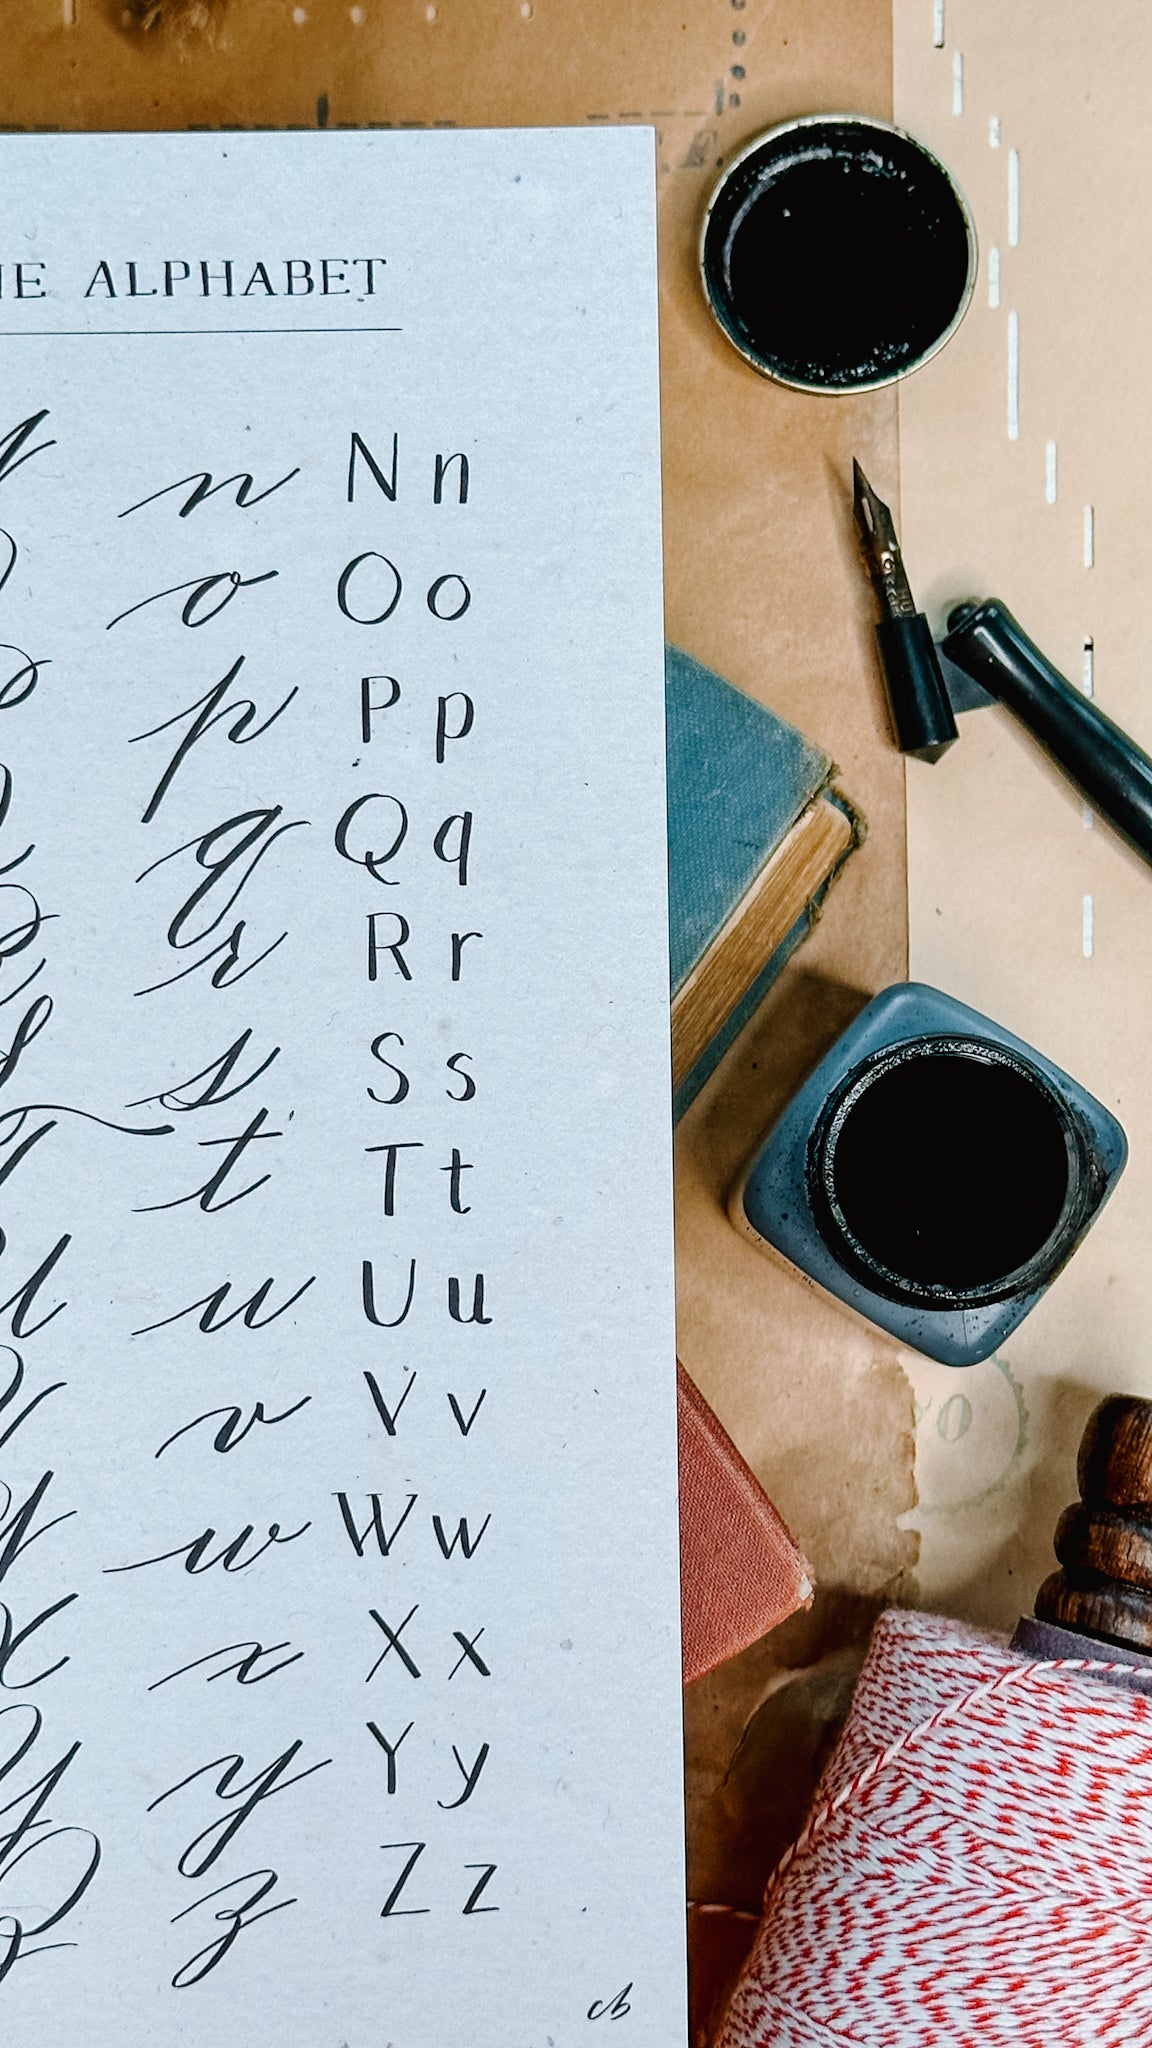 HE ALPHABET
n N n
o O o
p P p
q Q q
r R r
s S s
T t T t
U u U u
V v V v
w W w
X x X x
Y y Y y
Z z Z z
cb